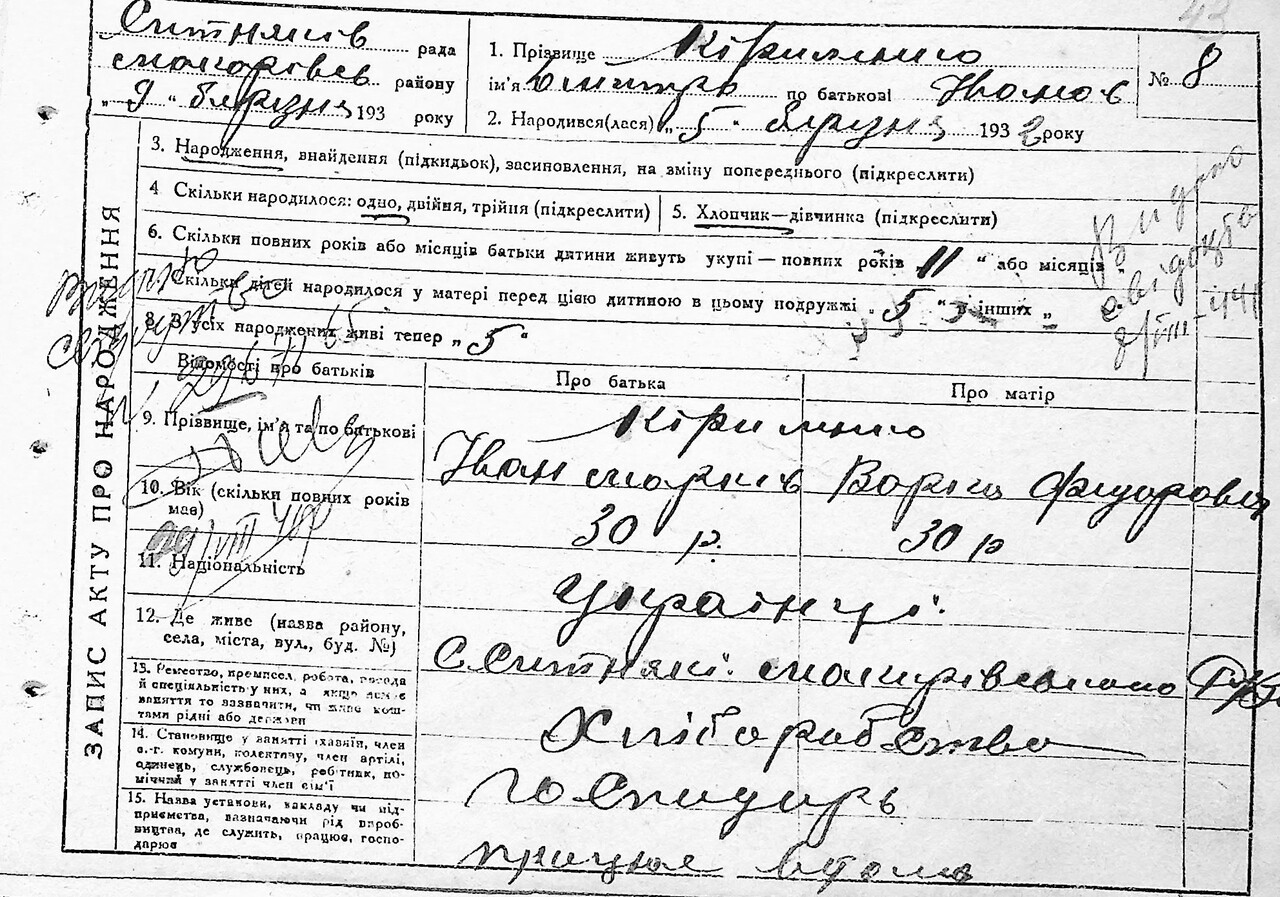 43
Ситняків рада
Макарівсь району
„ 9 “ березня 193 року
1. Прізвище Кириленко
ім'я по батькові Іванов
2. Народився(лася) „ 5 “ березня 1932 року
№ 8
ЗАПИС АКТУ ПРО НАРОДЖЕННЯ
3. Народження, внайдення (підкидьок), засиновлення, на зміну попереднього (підкреслити)
4 Скільки народилося: одно, двійня, трійня (підкреслити)
5. Хлопчик—дівчинка (підкреслити)
6. Скільки повних років або місяців батьки дитини живуть укупі — повних років 11 “ або місяців
Скільки дітей народилося у матері перед цією дитиною в цьому подружжі „ 5 “ в інших „
8. З усіх народжених живі тепер „ 5 “
Видано
свідоцтво
Відомості про батьків
Про батька
Про матір
9. Прізвище, ім'я та по батькові
Кириленко
Іван Марків
Варка Федоровна
10. Вік (скільки повних років має)
30 р.
30 р
11. Національність
Українці.
12. Де живе (назва району,
села, міста, вул., буд. №)
С Ситняки. Макарівського
13. Ремество, промисел, робота, посада
й спеціяльність у них, а якщо немає
заняття то зазначити, чи живе кош-
тами рідні або держави
Хліборобство
14. Становище у занятті (хазяїн, член
с.-г. комуни, колективу, член артілі,
одинець, службовець, робітник, по-
мічний у занятті член сім'ї
господарь
15. Назва установи, закладу чи під-
приємства, вазначаючи рід вироб-
ництва, де служить, працює, госпо-
дарює
працює вдома